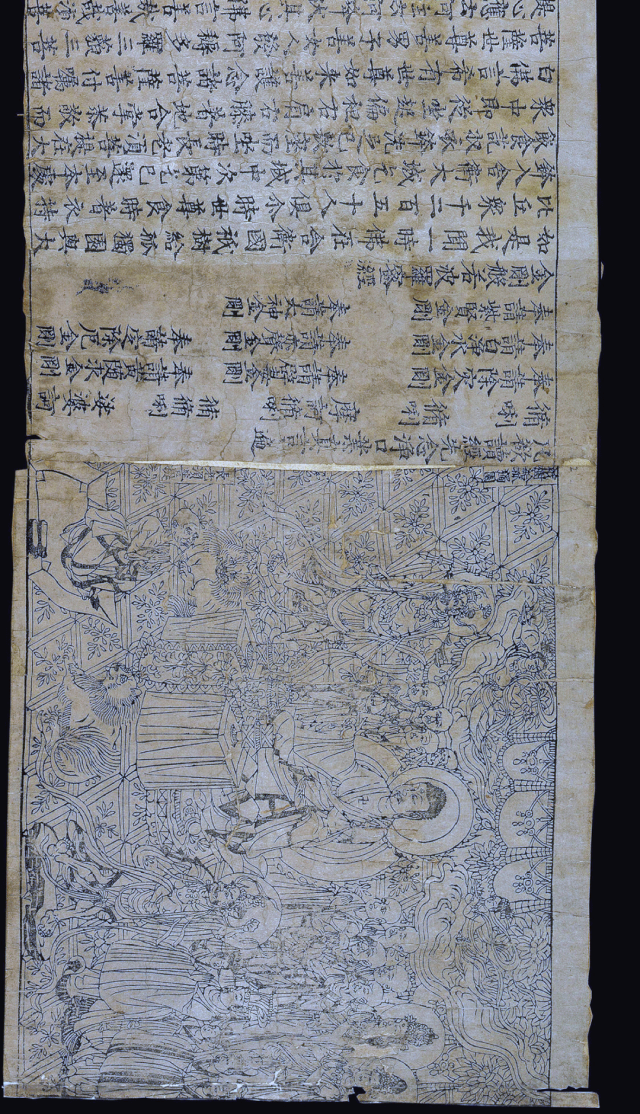 祇樹給孤獨園
凡欲讀經先念淨口業真言遍
脩唎 脩唎 摩訶脩唎 脩脩唎 娑婆訶
奉請除災金剛 奉請辟毒金剛 奉請黃隨求金剛
奉請白淨水金剛 奉請赤聲金剛 奉請定除厄金剛
奉請紫賢金剛 奉請大神金剛
金剛般若波羅蜜經
如是我聞一時佛在舍衛國祇樹給孤獨園與大
比丘眾千二百五十人俱尒時世尊食時著衣持
鉢入舍衛大城乞食於其城中次第乞已還至本處
飯食訖收衣鉢洗足已敷座而坐時長老須菩提在大
眾中即從座起偏袒右肩右膝著地合掌恭敬而
白佛言希有世尊如來善護念諸菩薩善付囑諸
菩薩世尊善男子善女人發阿耨多羅三藐三菩
提心應云何住云何降伏其心佛言善哉善哉